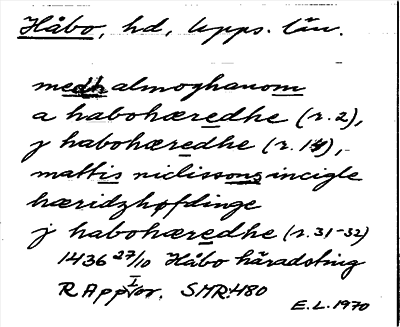 Håbo, hd, Upps. län.
medh almoghanom
a habohæredhe (r. 2),
j habohæredhe (r. 14),
mattis niclissons incigle
hæridzhøfdinge
j habohæredhe (r. 31-32)
1436 27/10 Håbo häradsting
R App. or. SMR 480
E.L. 1970